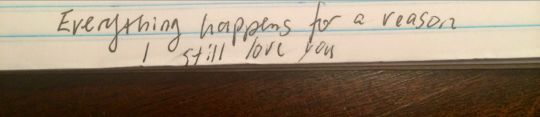 Everything happens for a reason
I still love you